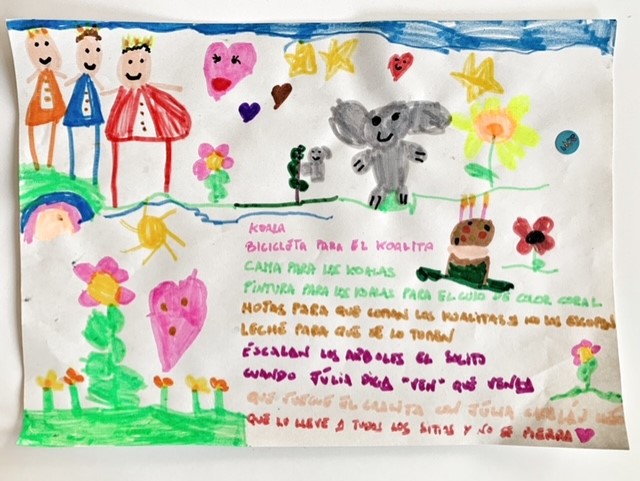 KOALA
BICICLETA PARA EL KOALITA
CAMA PARA LOS KOALAS
PINTURA PARA LOS KOALAS PARA EL CULO DE COLOR CORAL
HOJAS PARA QUE COMAN LAS KOALITAS Y NO LAS ESCUPAN
LECHE PARA QUE SE LO TOMEN
ESCALAN LOS ARBOLES EL SOLITO
CUANDO JÚLIA DIGA "VEN" QUE VENGA
QUE JUEGUE EL KOALITA CON JÚLIA
QUE LO LLEVE A TODOS LOS SITIOS Y NO SE PIERDA